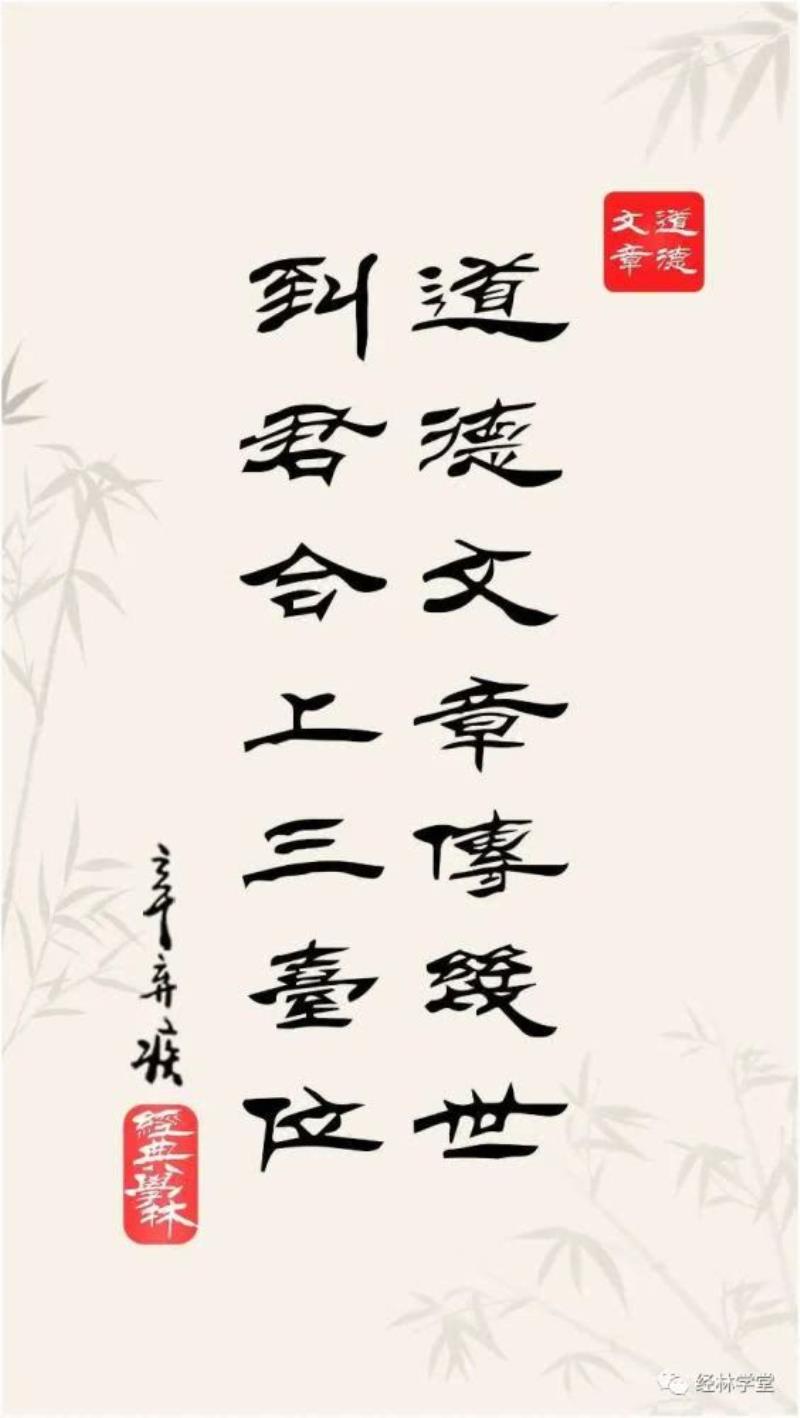 道德文章
道德文章傳幾世
到君合上三臺位
辛棄疾
經典學林
经林学堂